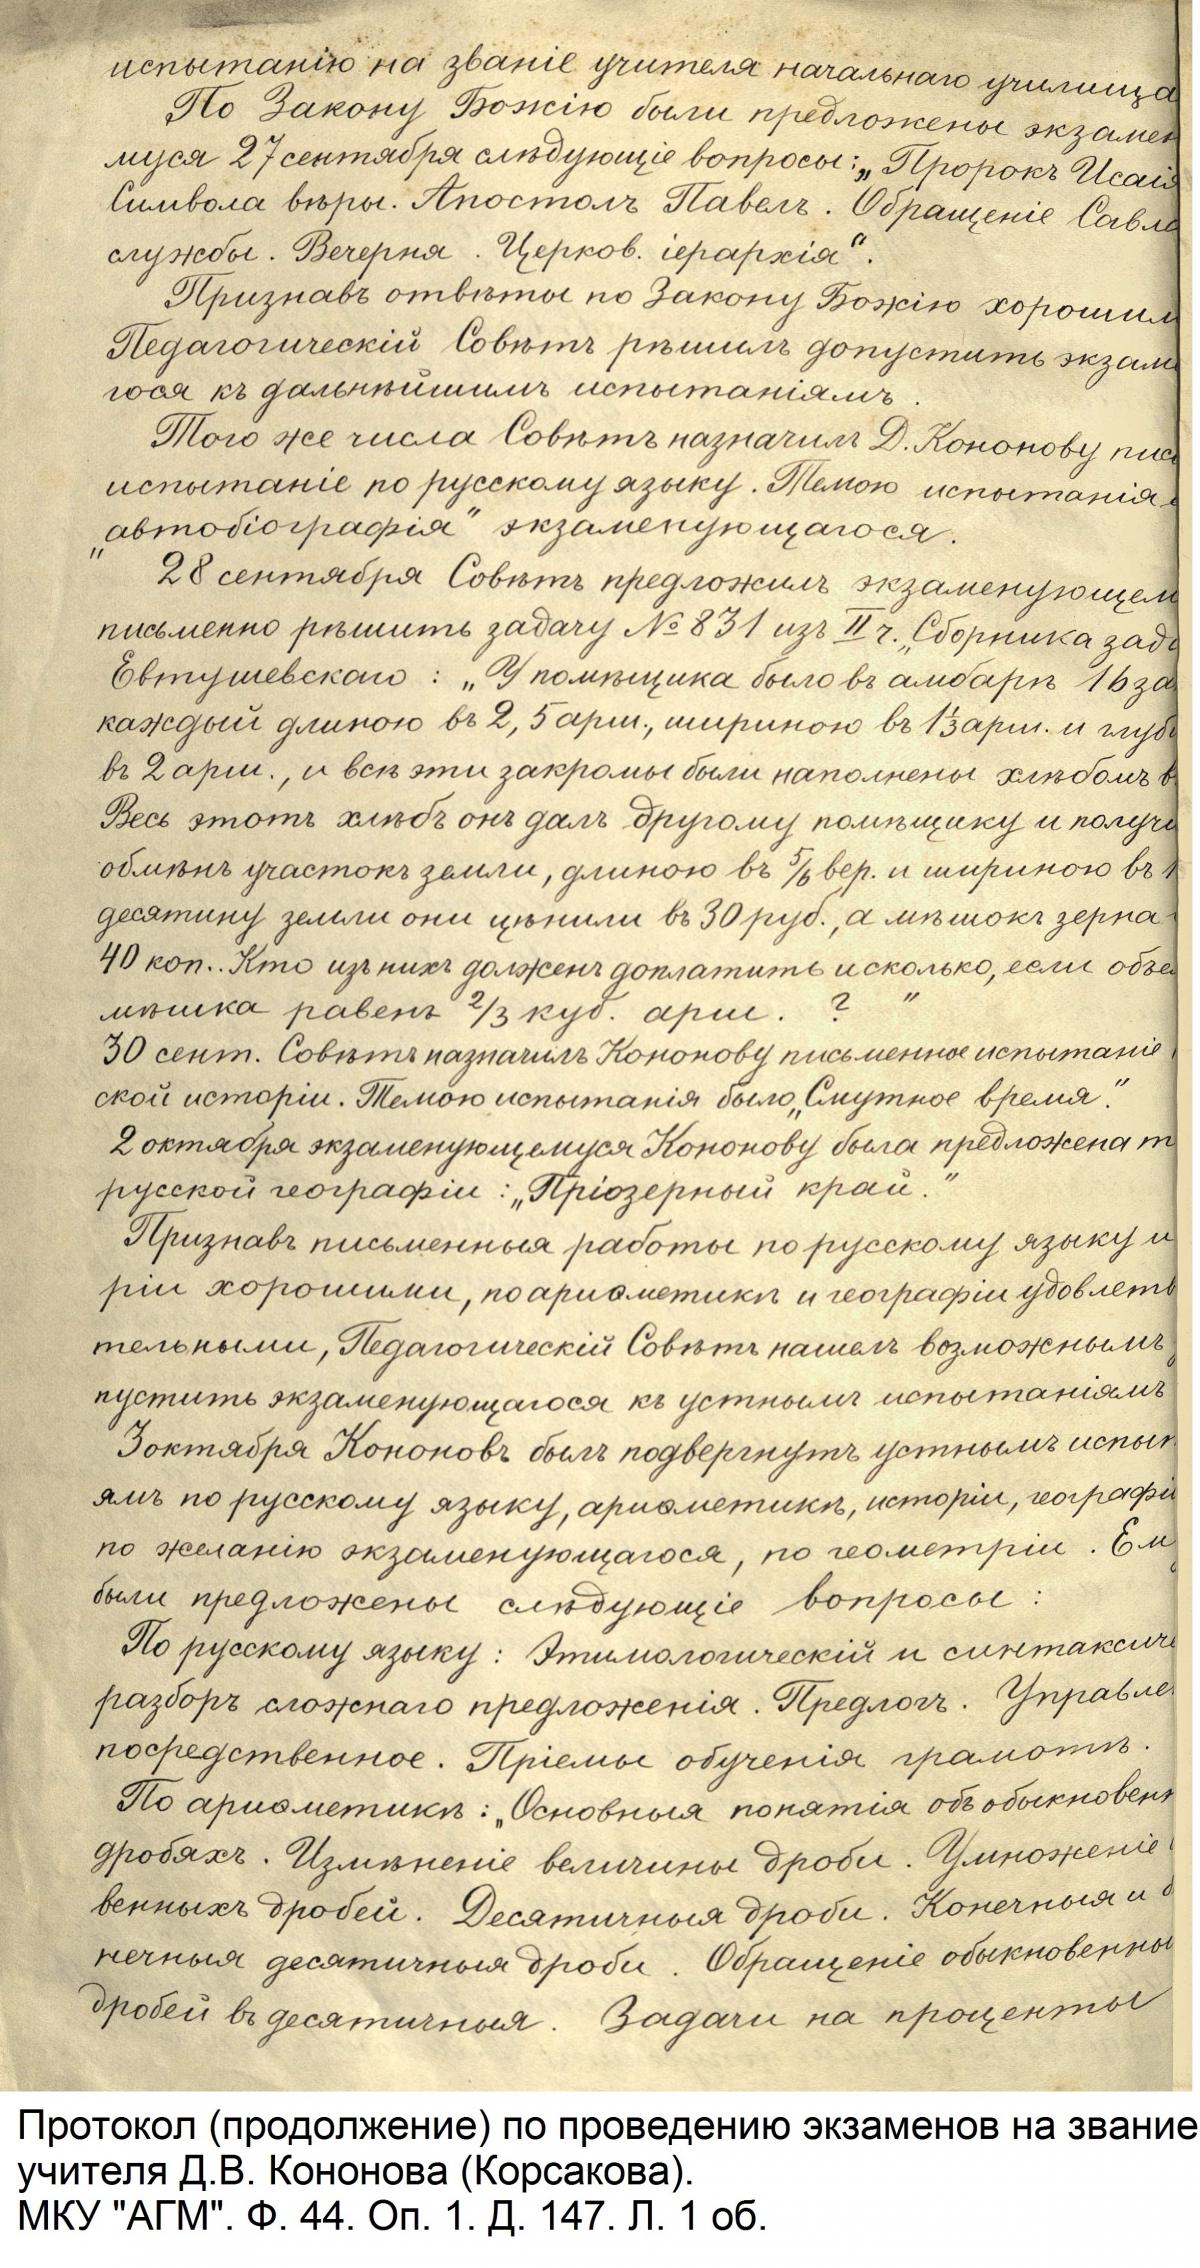 испытанію на званіе учителя начальнаго училища
По Закону Божію были предложены экзамен
муся 27 сентября слѣдующіе вопросы: „Пророкъ Исаія
Символа вѣры. Апостолъ Павелъ. Обращеніе Савла
службы. Вечерня. Церков. іерархія“.
Признавъ отвѣты по Закону Божію хорошим
Педагогическій Совѣтъ рѣшилъ допустить экзам
гося къ дальнѣйшимъ испытаніямъ.
Того же числа Совѣтъ назначилъ Д. Кононову пись
испытаніе по русскому языку. Темою испытанія
„автобіографія“ экзаменующагося.
28 сентября Совѣтъ предложилъ экзаменующем
письменно рѣшить задачу № 831 изъ II ч. „Сборника зада
Евтушевскаго: „У помѣщика было въ амбарѣ 16 за
каждый длиною въ 2,5 арш., шириною въ 1⅓ арш. и глуб
въ 2 арш., и всѣ эти закромы были наполнены хлѣбомъ в
Весь этотъ хлѣбъ онъ далъ другому помѣщику и получи
обмѣнъ участокъ земли, длиною въ 5/6 вер. и шириною въ 1
десятину земли они цѣнили въ 30 руб., а мѣшокъ зерна
40 коп.. Кто изъ нихъ долженъ доплатить и сколько, если объе
мѣшка равенъ 2/3 куб. арш. ? “
30 сент. Совѣтъ назначилъ Кононову письменное испытаніе
ской исторіи. Темою испытанія было „Смутное время“.
2 октября экзаменующемуся Кононову была предложена т
русской географіи: „Пріозерный край.“
Признавъ письменныя работы по русскому языку и
ріи хорошими, по ариѳметикѣ и географіи удовлетв
тельными, Педагогическій Совѣтъ нашелъ возможнымъ
пустить экзаменующагося къ устнымъ испытаніямъ
3 октября Кононовъ былъ подвергнутъ устнымъ испыт
ямъ по русскому языку, ариѳметикѣ, исторіи, географіи
по желанію экзаменующагося, по геометріи. Ему
были предложены слѣдующіе вопросы:
По русскому языку: Этимологическій и синтаксиче
разборъ сложнаго предложенія. Предлогъ. Управле
посредственное. Пріемы обученія грамотѣ.
По ариѳметикѣ: „Основныя понятія объ обыкновенн
дробяхъ. Измѣненіе величины дроби. Умноженіе
венныхъ дробей. Десятичныя дроби. Конечныя и б
нечныя десятичныя дроби. Обращеніе обыкновенны
дробей въ десятичныя. Задачи на проценты
Протокол (продолжение) по проведению экзаменов на звание
учителя Д.В. Кононова (Корсакова).
МКУ "АГМ". Ф. 44. Оп. 1. Д. 147. Л. 1 об.